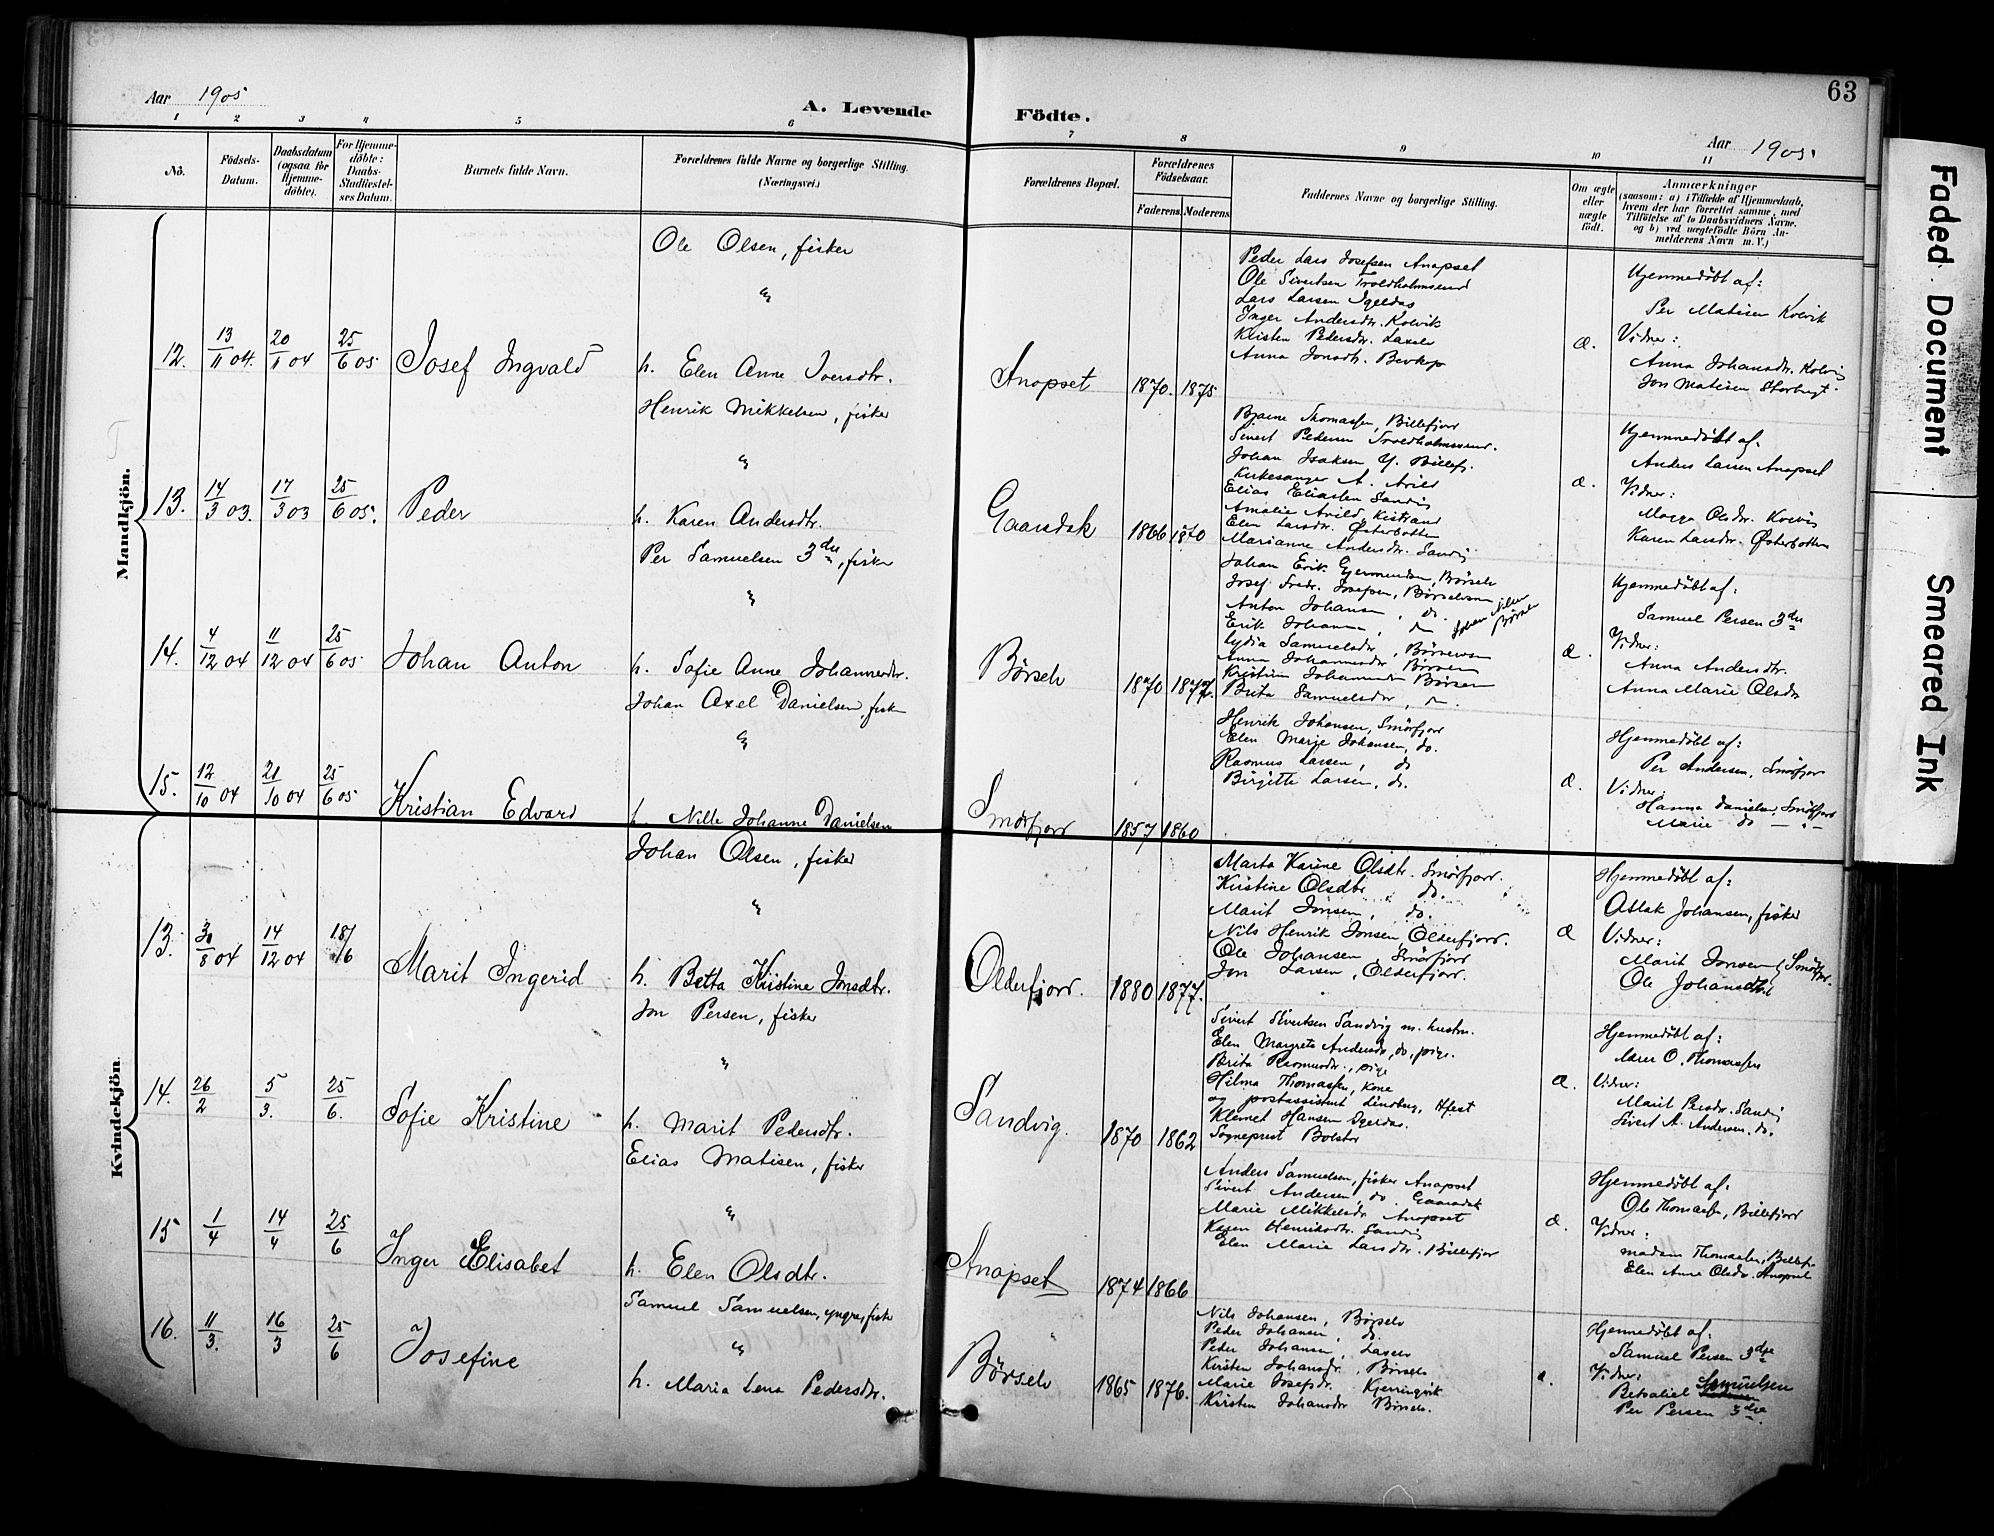 63
Aar 1905
A. Levende
Födte.
Aar 1905.
1 2 3 4 5 6 7 8 9 10 11
No.
Födsels-
Datum.
Daabsdatum
(ogsaa for
Hjemme-
döbte).
For Hjemme-
döbte:
Daabs-
Stadfæstel-
ses Datum.
Barnets fulde Navn.
Forældrenes fulde Navne og borgerlige Stilling.
(Næringsvei.)
Forældrenes Bopæl.
Forældrenes
Födselsaar.
Faderens. Moderens.
Faddernes Navne og borgerlige Stilling.
Om ægte
eller
uægte
födt.
Anmærkninger
(saasom: a) i Tilfælde af Hjemmedaab,
hvem der har forrettet samme, med
Tilföielse af to Daabsvidners Navne.
og b) ved uægtefödte Börn An-
melderens Navn m. V.)
Mandkjön.
12. 13/11 04. 20/11 04 25/6 05 Josef Ingvald
Ole Olsen, fisker
"
h. Elen Anne Iversdtr.
Anopset 1870. 1875
Peder Lars Josefsen Anopset
Ole Sivertsen Troldholmsund
Lars Larsen Igeldas
Inger Andersdtr. Kolvik
Kristen Pedersdtr. Laxelv
Anna Jonsdtr. Bevkop
æ.
Hjemmedøbt af:
Per Matisen Kolvik
Vidner:
Anna Johansdtr. Kolvig
Jon Matisen Storbugt
13. 14/3 03. 17/3 03 25/6 05. Peder
Henrik Mikkelsen, fisker
"
h. Karen Andersdtr.
Gaarsdak 1866 1870
Bjarne Thomassen, Billefjord
Sivert Pedersen Troldholmsund.
Johan Isaksen Y. Billefj.
Kirkesanger A. Arild
Elias Eliassen Sandvig
Amalie Arild, Kistrand
Elen Larsdtr. Østerbotten
Marianne Andersdtr. Sandvig
æ.
Hjemmedøbt af:
Anders Larsen Anopset
Vidner:
Magga Olsdtr. Kolvig
Karen Larsdtr. Østerbotten
14. 4/12 04 11/12 04 25/6 05 Johan Anton
Per Samuelsen 3die, fisker
"
h. Sofie Anne Johannesdtr.
Børselv 1870 1877
Johan Erik Gjermundsen, Børselv
Josef Fredr. Josefsen, Børselvsen
Anton Johansen, do.
Erik Johansen, do Johan Nilsen Børselv
Lydia Samuelsdtr, Børselvsen
Anna Johannesdtr Børselv
Kristine Johannesdtr Børselv
Brita Samuelsdtr, do.
æ.
Hjemmedøbt af:
Samuel Persen 3die
Vidner:
Anna Andersdtr.
Anna Marie Olsdtr
15. 12/10 04 21/10 04 25/6 05 Kristian Edvard
Johan Axel Danielsen fisker
"
h. Nille Johanne Danielsen
Smørfjord 1857 1860
Henrik Johansen, Smørfjord
Elen Marje Johansen, do.
Rasmus Larsen, do
Birgitte Larsen, do.
æ.
Hjemmedøbt af:
Per Andersen, Smørfjord
Vidner:
Hanna Danielsen, Smørfjord
Marie do — " —
Kvindekjön.
13. 31/8 04 14/12 04 18/6 Marit Ingerid
Johan Olsen, fisker
"
h. Betta Kristine Jonsdtr.
Olderfjord. 1880 1877.
Marta Karine Olsdtr. Smørfjord.
Kristine Olsdtr, do.
Marit Jonsen, do.
Nils Henrik Jonsen, Olderfjord.
Ole Johansen, Smørfjord
Jon Larsen, Olderfjord.
æ
Hjemmedøbt af:
Atlak Johansen, fisker
Vidner:
Marit Jonsen, Smørfjor.
Ole Johansen
14. 26/2 5/3. 25/6. Sofie Kristine
Jon Persen, fisker
"
h. Marit Pedersdtr.
Sandvig. 1870 1862
Sivert Sivertsen Sandvig m. hustru.
Elen Margrete Andersdtr, do, pige.
Brita Rasmusdtr, pige
Hilma Thomassen, kone
og postassistent Lindberg, Hfest
Klemet Hansen Igeldas.
Sogneprest Bolstad
æ.
Hjemmedøbt af:
Lærer O. Thomassen
Vidner:
Marit Persdtr. Sandvig
Sivert A. Andersen, do.
15 1/4 14/4 25/6 Inger Elisabet
Elias Matisen, fisker
"
h. Elen Olsdtr.
Anopset 1874 1866
Anders Samuelsen, fisker Anopset
Sivert Andersen, do Gaarsdak
Marie Mikkelsdtr Anopset
Karen Henriksdtr. Sandvig
Elen Marie Larsdtr. Billefjor
æ.
Hjemmedøbt af:
Ole Thomassen, Billefjord
Vidner:
madam Thomassen, Billefj.
Elen Anne Olsdtr. Anopset
16. 11/3. 16/3 25/6 Josefine
Samuel Samuelsen, yngre, fisk
"
h. Maria Lena Pedersdtr.
Børselv 1865 1876.
Nils Johansen, Børselv
Peder Johansen, do.
Peder Johansen, Laxelv
Kirsten Johansdtr, Børselv
Marie Josefsdtr. Kjerringvik
Kirsten Johansdtr Børselv.
æ.
Hjemmedøbt af:
Samuel Persen 3die
Vidner:
Betsaliel Samuelsen
Per Persen 3die.
Faded Document
Smeared Ink